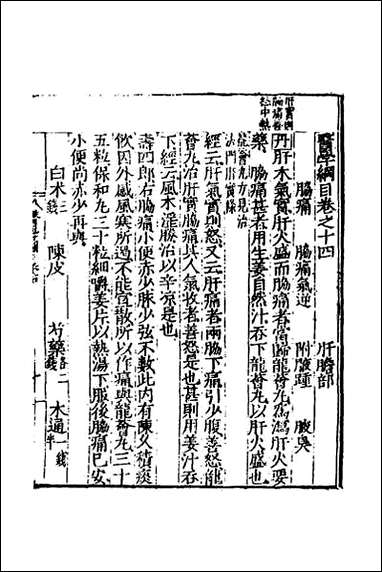 醫學綱目卷之十四　肝膽部
脇痛　脇痛氣逆　附腋踵　腋臭
肝實則脇痛者
丹肝木氣實肝火盛而脇痛者當歸龍薈丸為瀉肝火要
藥　脇痛甚者用生姜自然汁吞下龍薈丸以肝火盛也
法門肝實條
經云肝氣實則怒又云肝痛者兩脇下痛引少腹善怒龍
薈丸治肝實脇痛其人氣收者善怒是也甚則用姜汁吞
下經云風木淫勝治以辛涼是也
壽四郎右脇痛小便赤少脉少弦不數此內有陳久積痰
飲因外感風寒所遏不能宣散所以作痛與龍薈丸三十
五粒保和丸三十粒細嚼姜片以熱湯下服後脇痛已安
小便尚赤少再與
白术三錢　陳皮　芍藥各二錢　木通一錢半